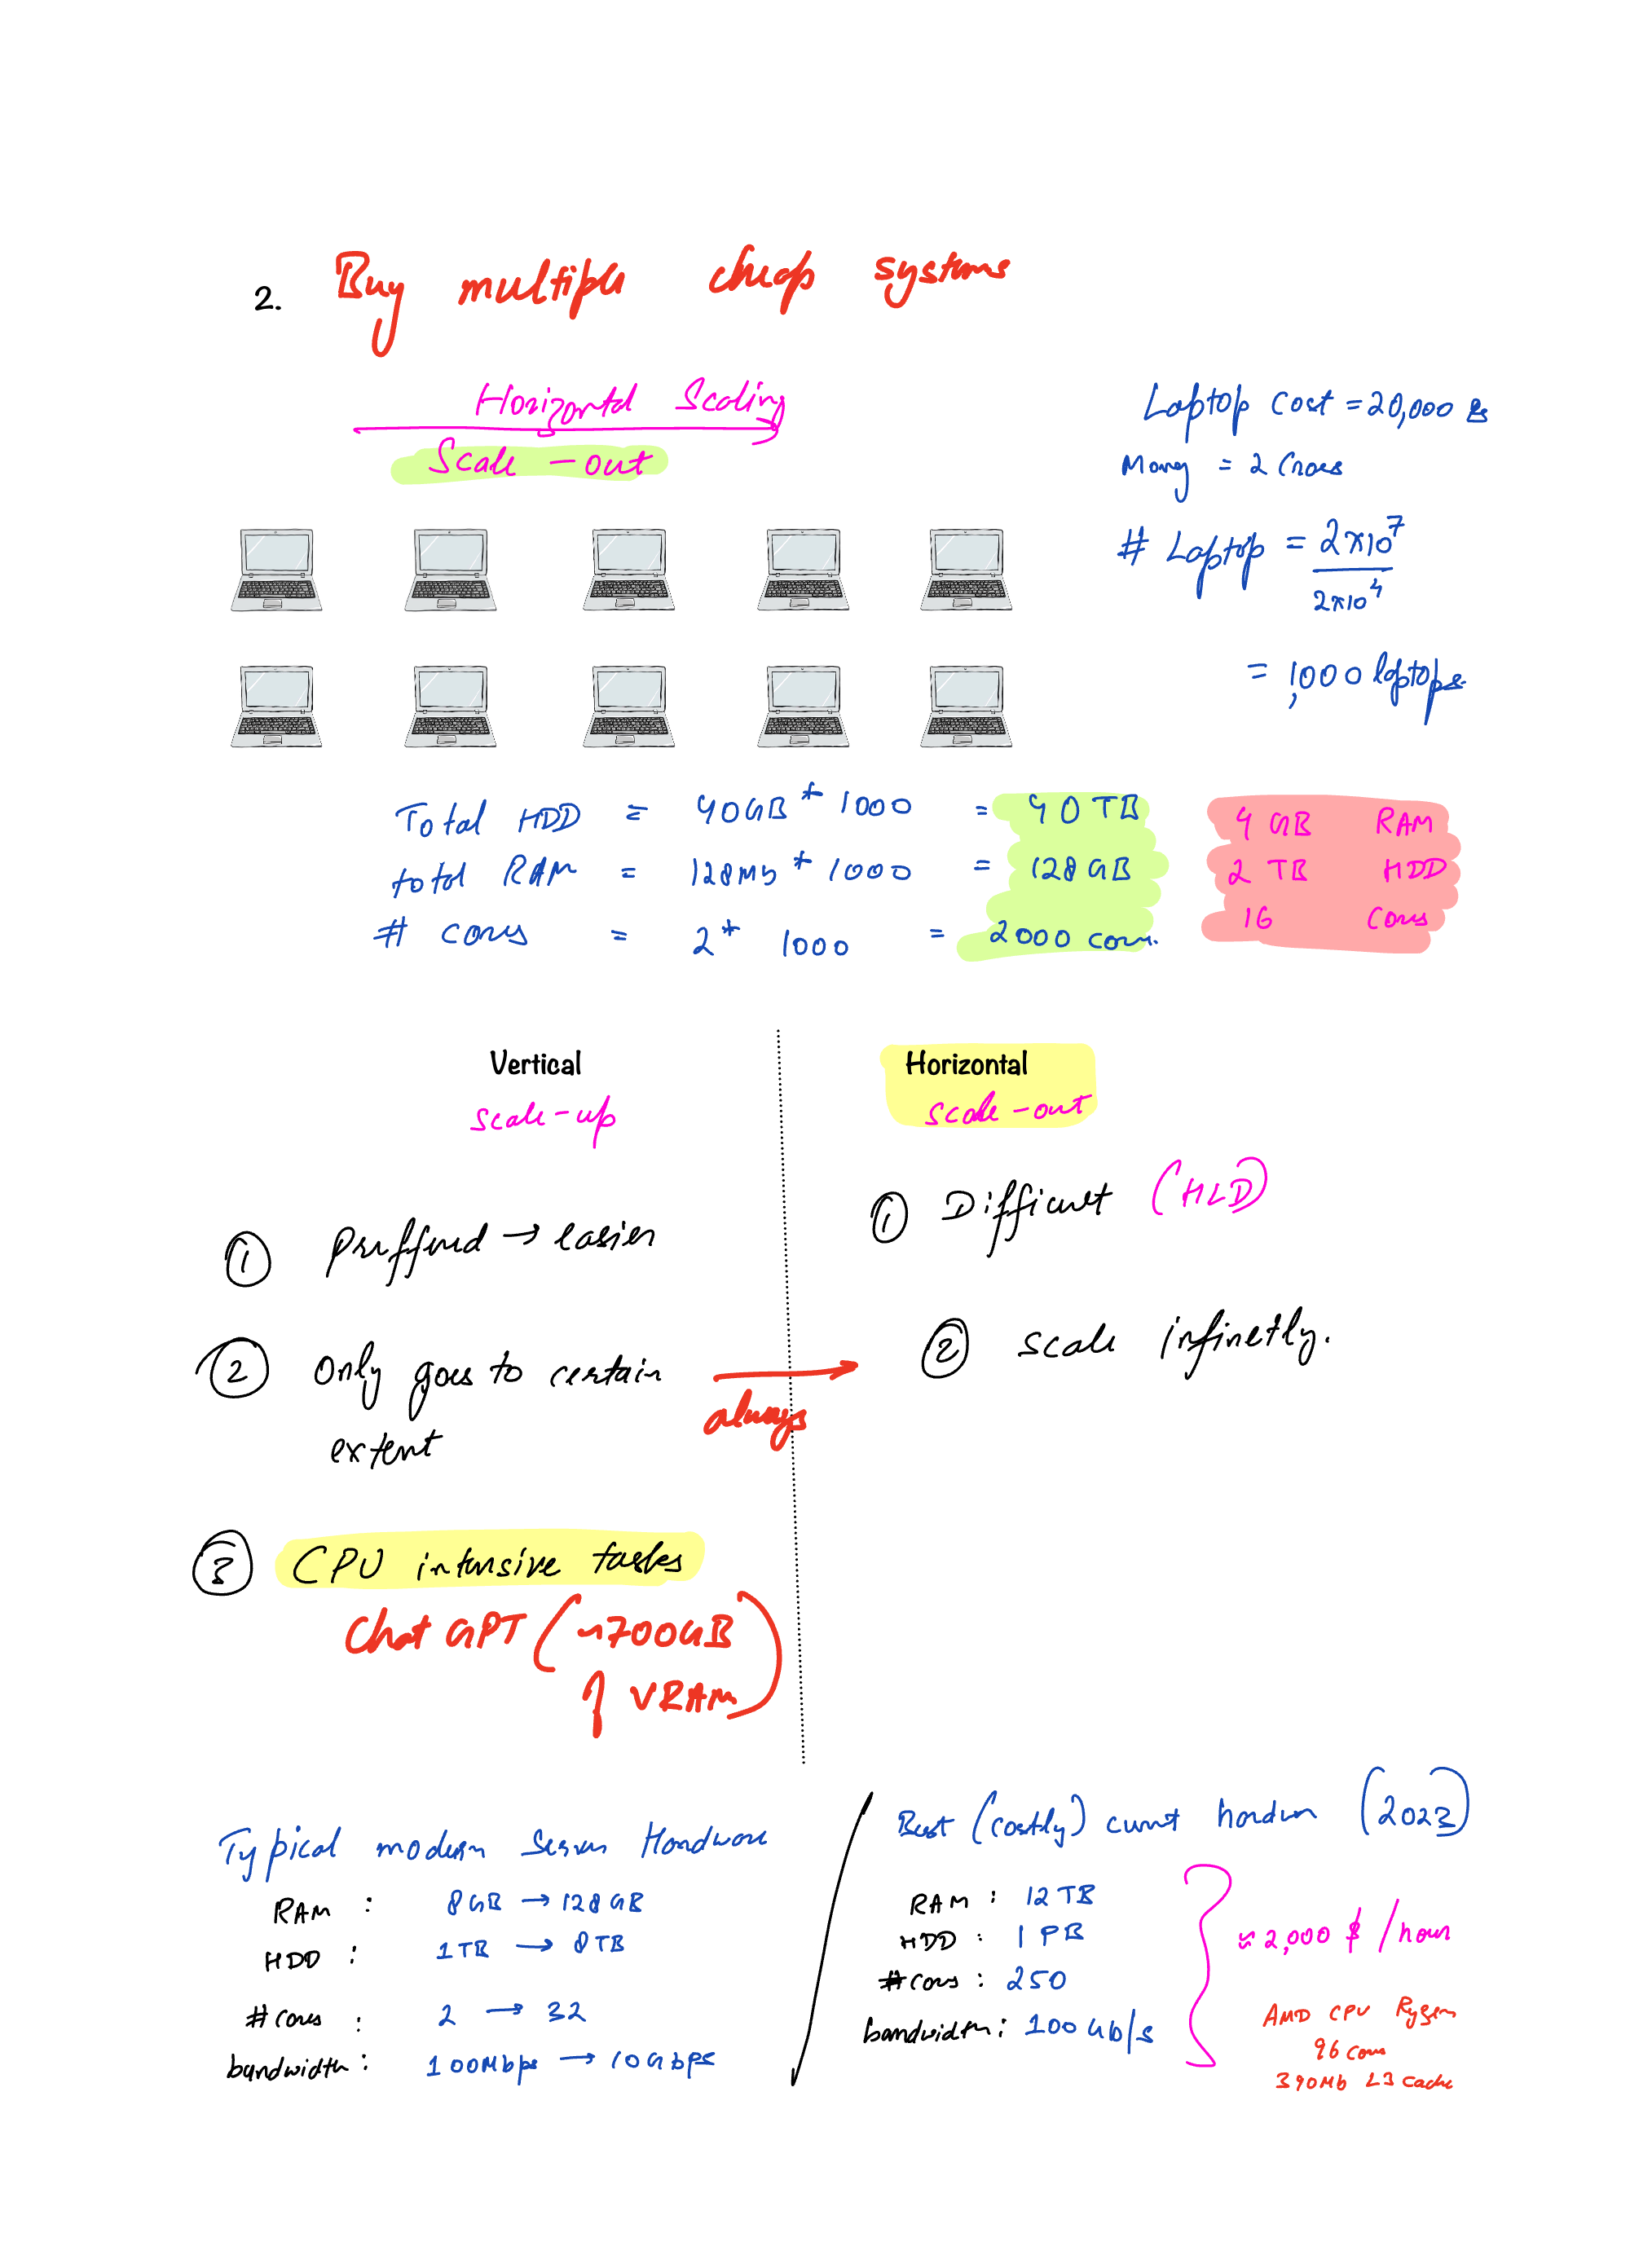 2. Buy multiple cheap systems
Horizontal Scaling
Scale-out
Laptop Cost = 20,000 Rs
Money = 2 Crores
# Laptop = 2×10^7
2×10^4
= 1,000 laptops.
Total HDD = 40GB * 1000 = 40 TB
total RAM = 128Mb * 1000 = 128 GB
# cores = 2 * 1000 = 2000 cores.
4 GB RAM
2 TB HDD
16 Cores
Vertical
scale-up
Horizontal
scale-out
① Preffered → easier
② Only goes to certain
extent
always
③ CPU intensive tasks
Chat GPT (~700GB
of VRAM)
① Difficult (HLD)
② scale infinetly.
Typical modern Server Hardware
RAM : 8GB → 128GB
HDD : 1TB → 8TB
# Cores : 2 → 32
bandwidth : 100Mbps → 10Gbps
Best (costly) current hardware (2023)
RAM : 12TB
HDD : 1 PB
# Cores : 250
bandwidth : 100Gb/s
≈ 2,000 $ / hour
AMD CPU Ryzen
96 cores
390Mb L3 cache